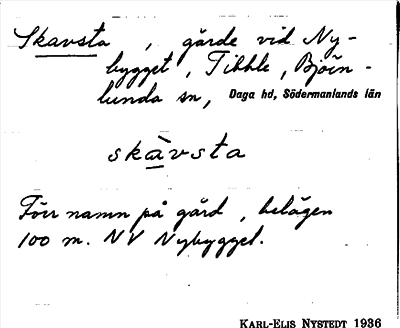 Skavsta, gärde vid Ny-
bygget, Tibble, Björn-
lunda sn, Daga hd, Södermanlands län
skàvsta
Förr namn på gård, belägen
100 m. NV Nybygget.
KARL-ELIS NYSTEDT 1936